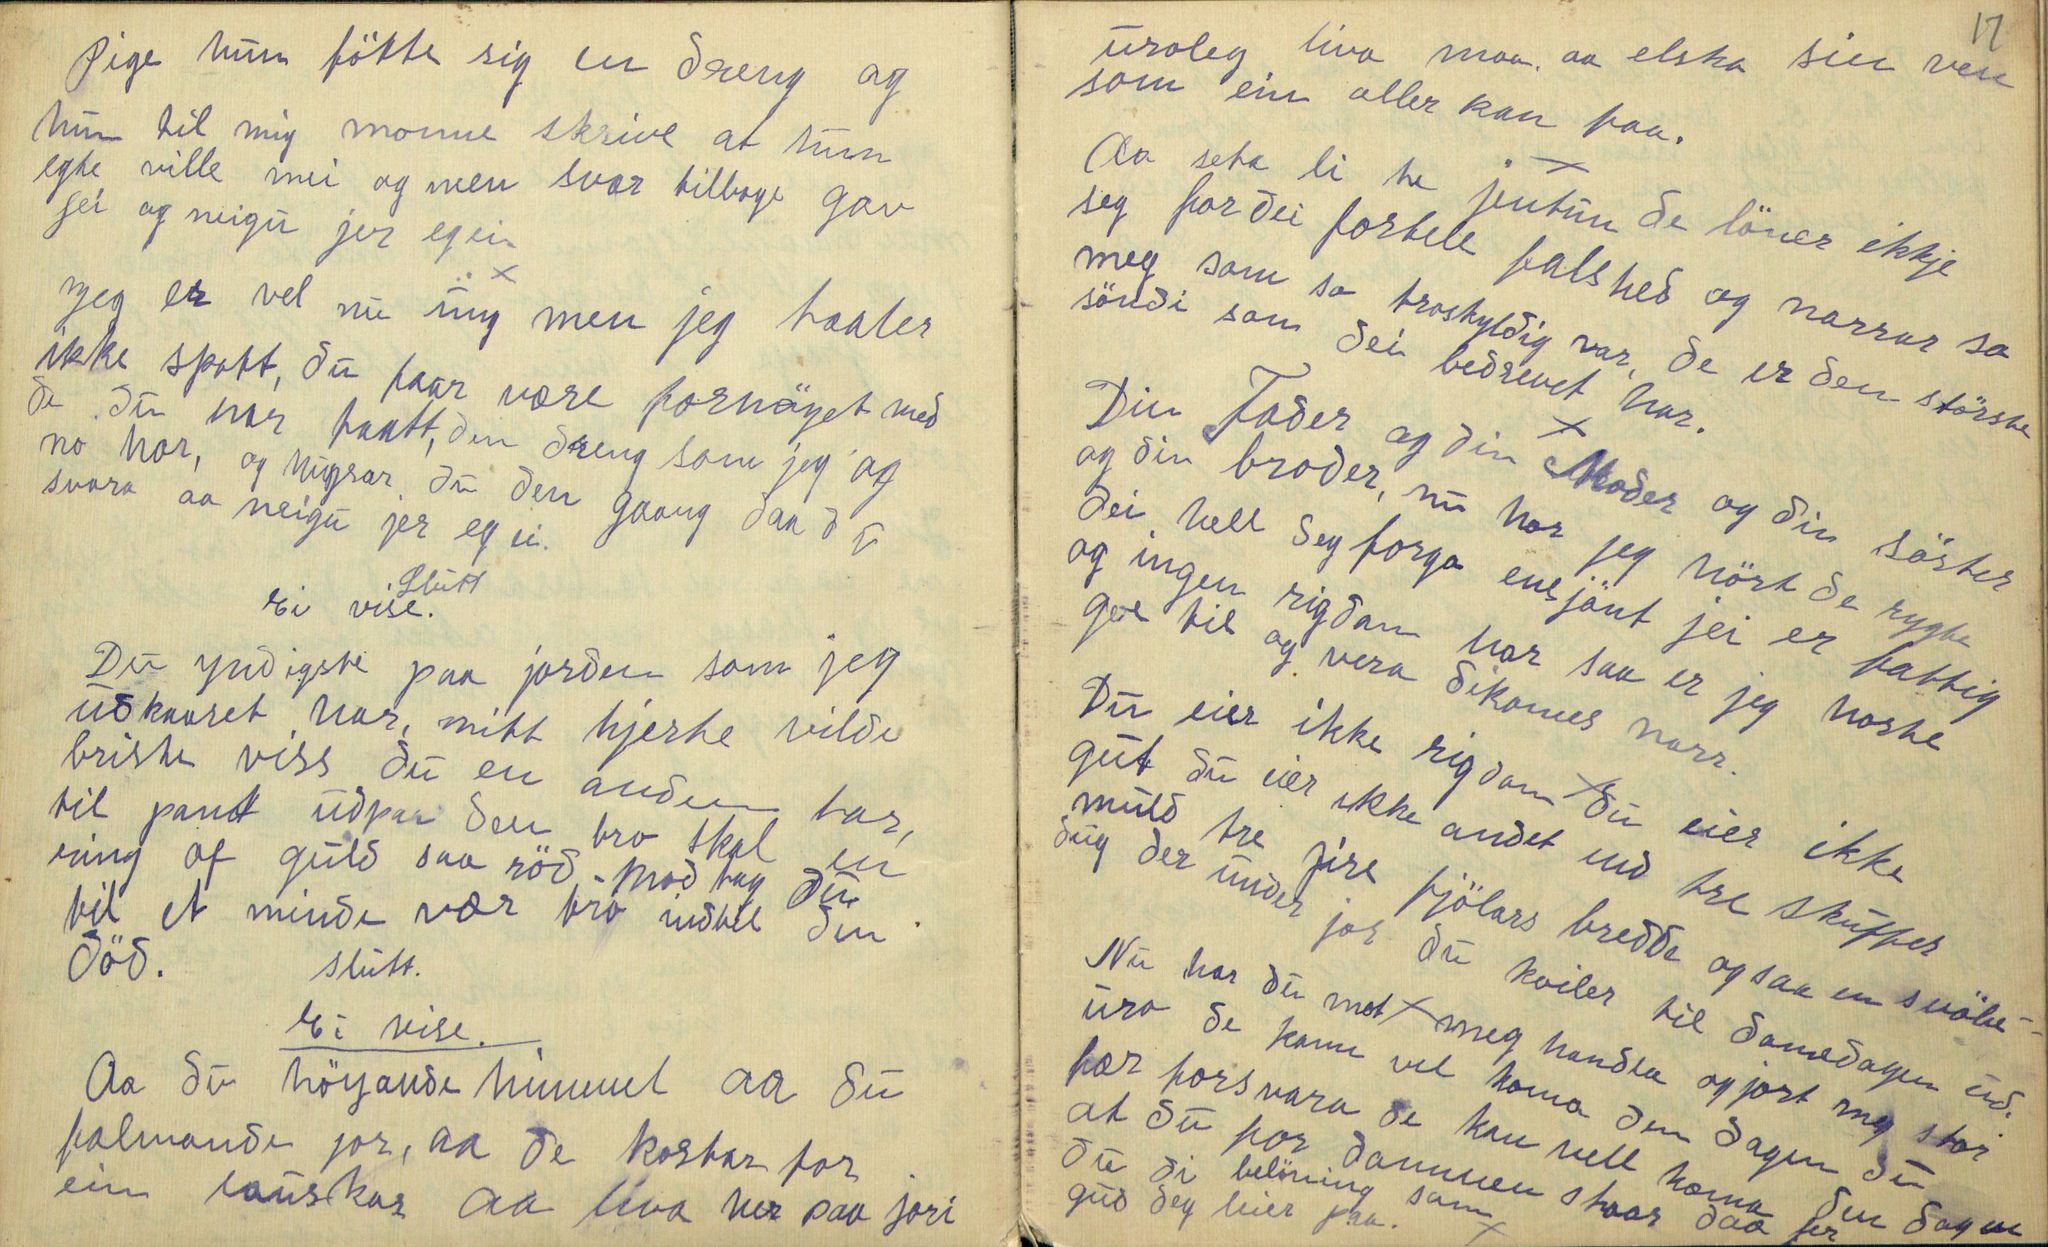 Pige hun fötte sig en dreng og
hun til mig monne skrive at hun
egte ville mei og men svar tilbage gav
jei og neigu jer eg ei.
x
Jeg er vel nu ung men jeg taaler
ikke spott, du faar være fornöyet med
de du har faatt, din dreng som jeg og
no har, og hugsar du den gaang daa du
svara aa neigu jer eg ei.
Slutt
Ei vise.
Du yndigste paa jorden som jeg
udkaaret har, mitt hjerte vilde
briste viss du en anden tar,
til pandt udpaa den tro skal en
ring af guld saa röd. Modtag du
til et minde vær tro indtil din
död.
slutt.
Ei vise.
Aa du höyande himmel aa du
falmande jor, aa de kostar for
ein lauskar aa liva her paa jori
17
uroleg liva maa. aa elska sin ven
som ein aller kan faa.
x
Aa seta li te jentun de löner ikkje
seg for dei fortell falshed og narrar sa
meg som sa troskyldig var, de er den störste
söndi som dei bedrevet har.
x
Din Fader og din Moder og din söster
og din broder, nu har jeg hört de rygte
dei hell seg forga enejönt jei er fattig
og ingen rigdom har saa er jeg noske
go til og vera dikomes narr.
x
Du eier ikke rigdom du eier ikke
gut du eier ikke andet end tre skuffer
muld tre fire fjölars bredde og saa en svöbe-
dug der under jor du kviler til domedagen ud.
x
Nu har du mot meg handla og jort meg stor
uro de kann vel koma den dagen du
fær forsvara de kan vell koma den dagen
at du for dommen staar daa fer
du di belöning som
gud deg leier paa.
x